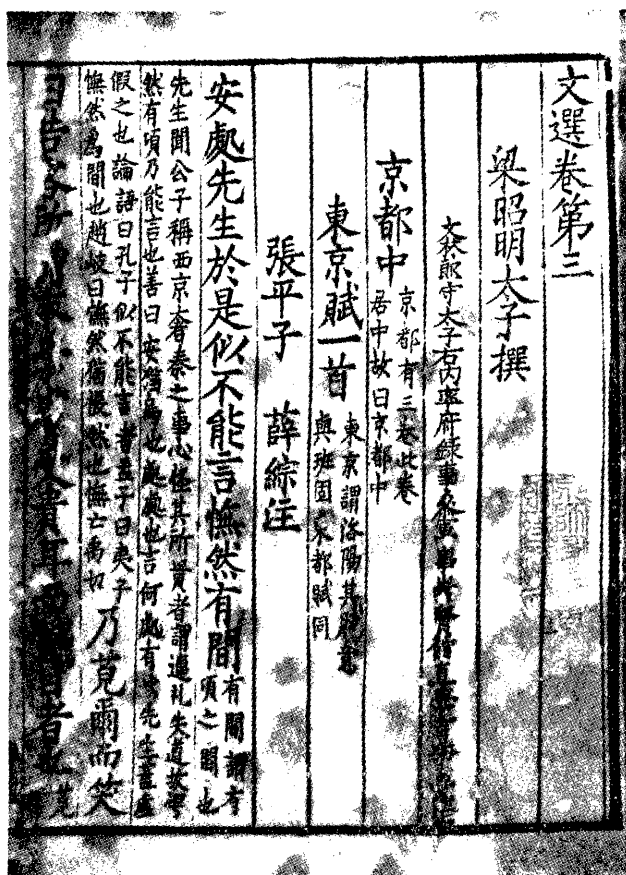 文選卷第三
梁昭明太子撰
文林郎守太子右內率府錄事
京都中 京都有三卷此卷
居中故曰京都中
東京賦一首 東京謂洛陽其賦意
與班固東都賦同
張平子 薛綜注
安處先生於是似不能言憮然有間 有間謂有
頃之間也
先生聞公子稱西京奢泰之事心怪其所貴者謂違礼失道故
然有頃乃能言也善曰安猶焉也處處也言何處有此先生蓋虛
假之也論語曰孔子似不能言者孟子曰夷子
憮然爲間也趙岐曰憮然猶悵然也憮亡禹切 乃莞爾而笑 莞
曰若客所謂末學膚受貴耳而賤目者也